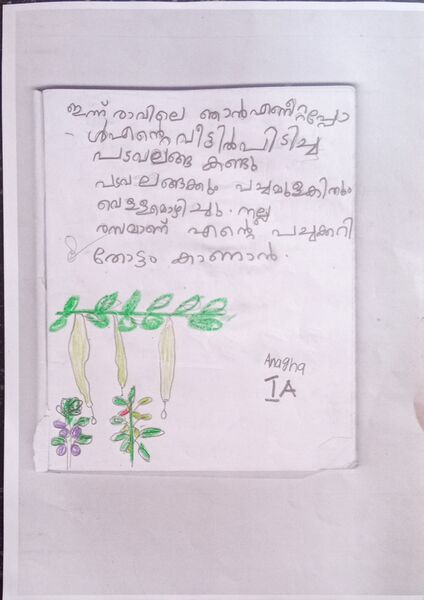 ഇന്ന് രാവിലെ ഞാൻഎണീറ്റപ്പോ
ൾഎന്റെ വീട്ടിൽപിടിച്ച
പടവലങ്ങ കണ്ടു
പടവലങ്ങക്കും പച്ചമുളകിനും
വെള്ളമൊഴിച്ചു. നല്ല
രസമാണ് എന്റെ പച്ചക്കറി
തോട്ടം കാണാൻ.
Anagha
I A